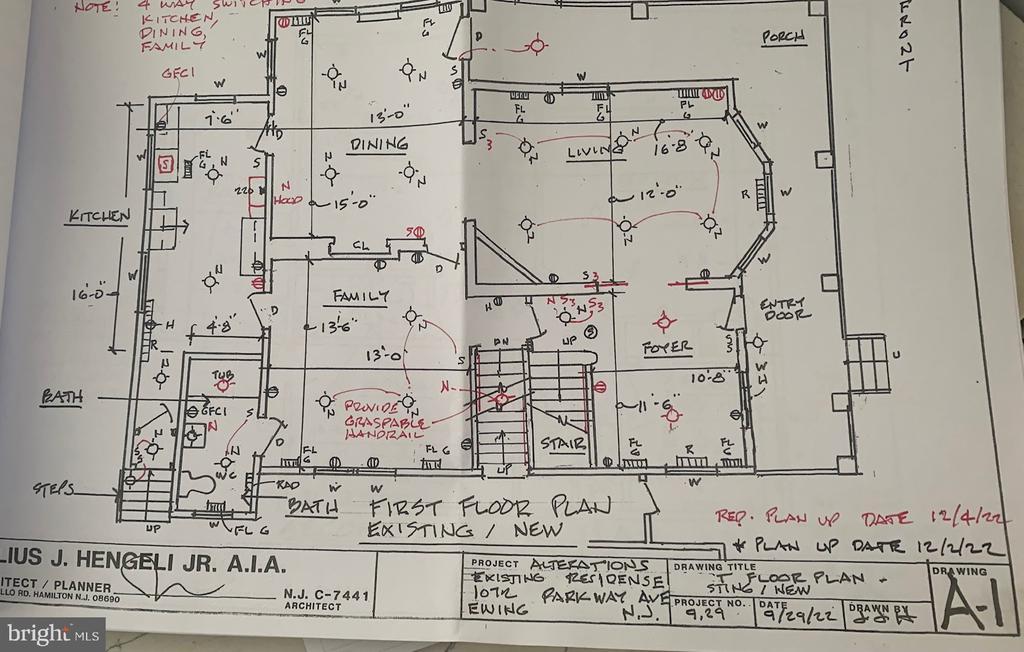 NOTE: 4 WAY SWITCHING
KITCHEN,
DINING,
FAMILY
GFCI
FRONT
PORCH
W
7'-6"
13'-0"
DINING
15'-0"
LIVING
16'-8
12'-0"
KITCHEN
16'-0"
4'-8"
220
N
HOOD
CL
FAMILY
13'-6"
13'-0
ENTRY
DOOR
FOYER
10'-8"
11'-6"
DN
UP
STAIR
UP
PROVIDE
GRASPABLE
HANDRAIL
BATH
TUB
GFCI
WC
RAD
BATH
STEPS
UP
FL G
FIRST FLOOR PLAN
EXISTING / NEW
REP. PLAN UP DATE 12/4/22
* PLAN UP DATE 12/2/22
LIUS J. HENGELI JR. A.I.A.
ITECT / PLANNER
LLO RD. HAMILTON N.J. 08690
N.J. C-7441
ARCHITECT
PROJECT ALTERATIONS
EXISTING RESIDENSE
1072 PARKWAY AVE
EWING N.J.
DRAWING TITLE
T FLOOR PLAN -
STING / NEW
PROJECT NO.
9,29
DATE
9/29/22
DRAWN BY
JJH
DRAWING
A-1
bright MLS